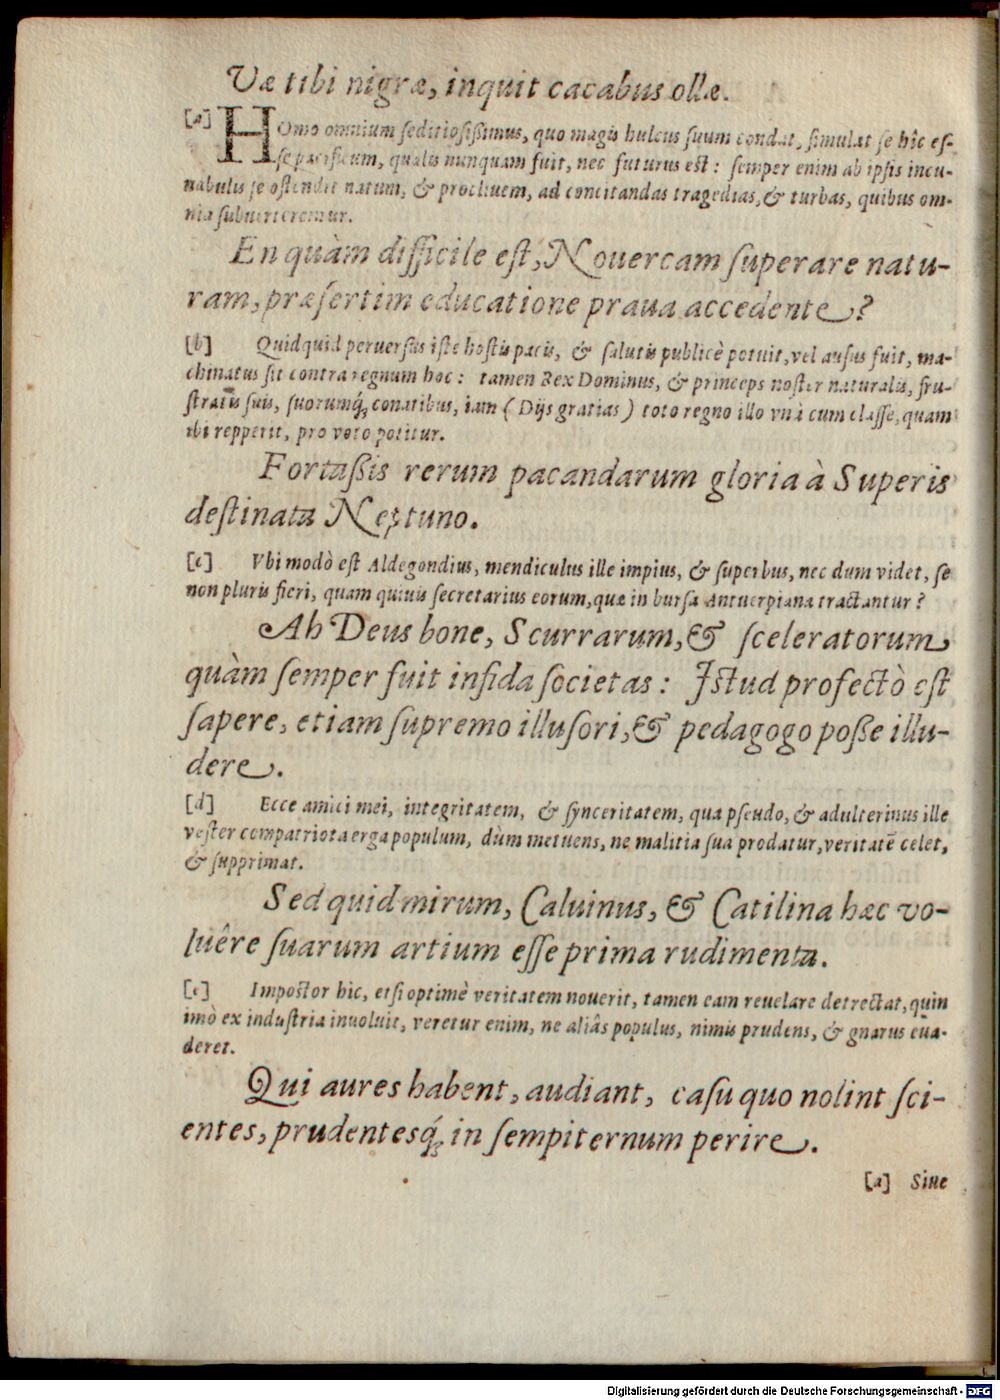 Væ tibi nigræ, inquit cacabus ollæ.
[a] HOmo omnium seditiosissimus, quo magis hulcus suum condat, simulat se hîc es-
se pacificum, qualis nunquam fuit, nec futurus est: semper enim ab ipsis incu-
nabulis se ostendit natum, & procliuem, ad concitandas tragedias, & turbas, quibus om-
nia subuerterentur.
En quàm difficile est, Nouercam superare natu-
ram, præsertim educatione praua accedente?
[b] Quidquid peruersus iste hostis pacis, & salutis publicè potuit, vel ausus fuit, ma-
chinatus sit contra regnum hoc: tamen Rex Dominus, & princeps noster naturalis, fru-
stratis suis, suorumq́; conatibus, iam (Dijs gratias) toto regno illo vnà cum classe, quam
ibi repperit, pro voto potitur.
Fortassis rerum pacandarum gloria à Superis
destinata Neptuno.
[c] Vbi modò est Aldegondius, mendiculus ille impius, & superbus, nec dum videt, se
non pluris fieri, quam quiuis secretarius eorum, quæ in bursa Antuerpiana tractantur?
Ah Deus bone, Scurrarum, & sceleratorum
quàm semper fuit infida societas: Istud profectò est
sapere, etiam supremo illusori, & pedagogo posse illu-
dere.
[d] Ecce amici mei, integritatem, & synceritatem, qua pseudo, & adulterinus ille
vester compatriota erga populum, dùm metuens, ne malitia sua prodatur, veritatē celet,
& supprimat.
Sed quid mirum, Caluinus, & Catilina hæc vo-
luêre suarum artium esse prima rudimenta.
[e] Impostor hic, etsi optimè veritatem nouerit, tamen eam reuelare detrectat, quin
imò ex industria inuoluit, veretur enim, ne aliâs populus, nimis prudens, & gnarus eua-
deret.
Qui aures habent, audiant, casu quo nolint sci-
entes, prudentesq́; in sempiternum perire.
[a] Siue
Digitalisierung gefördert durch die Deutsche Forschungsgemeinschaft - DFG